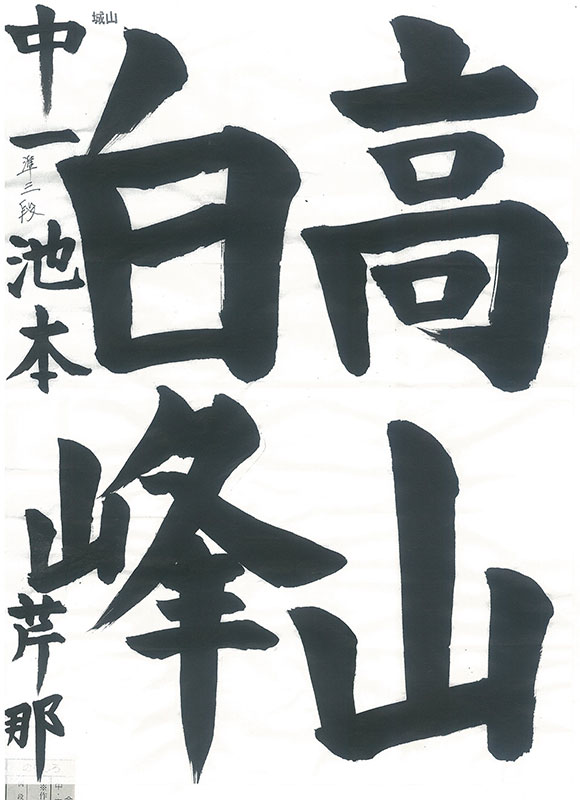 高山
白峰
中一 準三段 池本芹那
山城